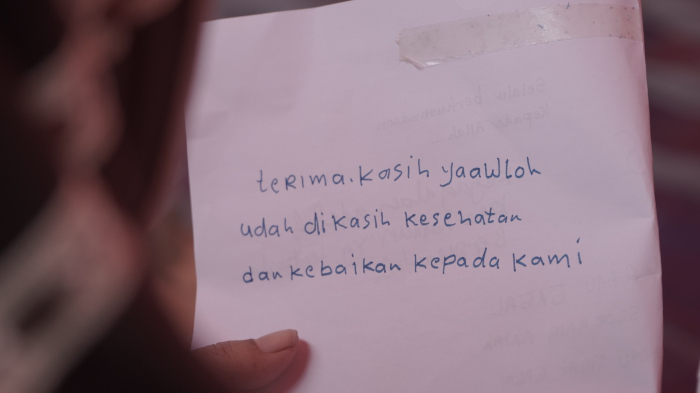 terima.kasih yaawloh
udah dikasih kesehatan
dan kebaikan kepada kami